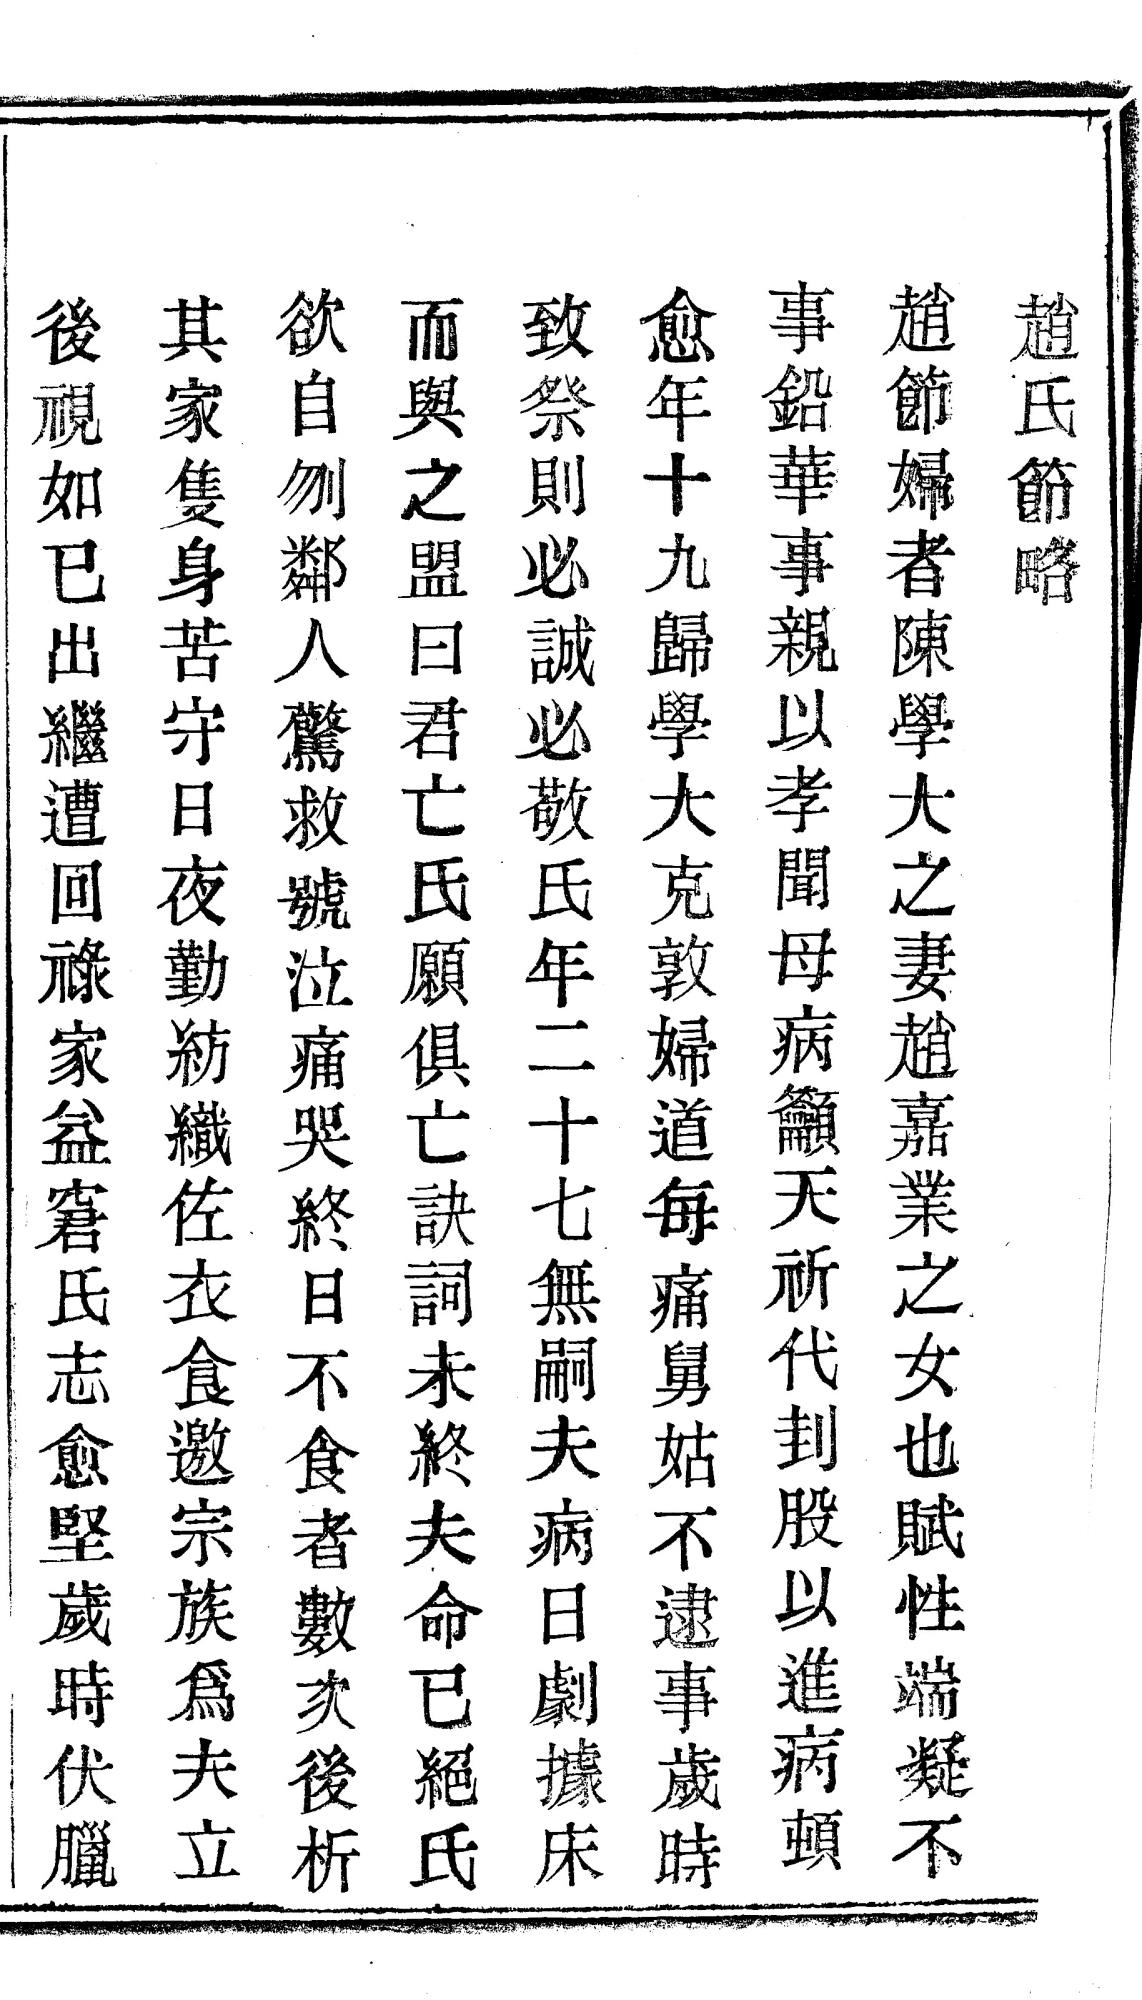 趙氏節略
趙節婦者陳學大之妻趙嘉業之女也賦性端凝不
事鉛華事親以孝聞母病籲天祈代刲股以進病頓
愈年十九歸學大克敦婦道每痛舅姑不逮事歲時
致祭則必誠必敬氏年二十七無嗣夫病日劇據床
而與之盟曰君亡氏願俱亡訣詞未終夫命已絕氏
欲自刎鄰人驚救號泣痛哭終日不食者數次後析
其家隻身苦守日夜勤紡織佐衣食邀宗族爲夫立
後視如已出繼遭回祿家益窘氏志愈堅歲時伏臘